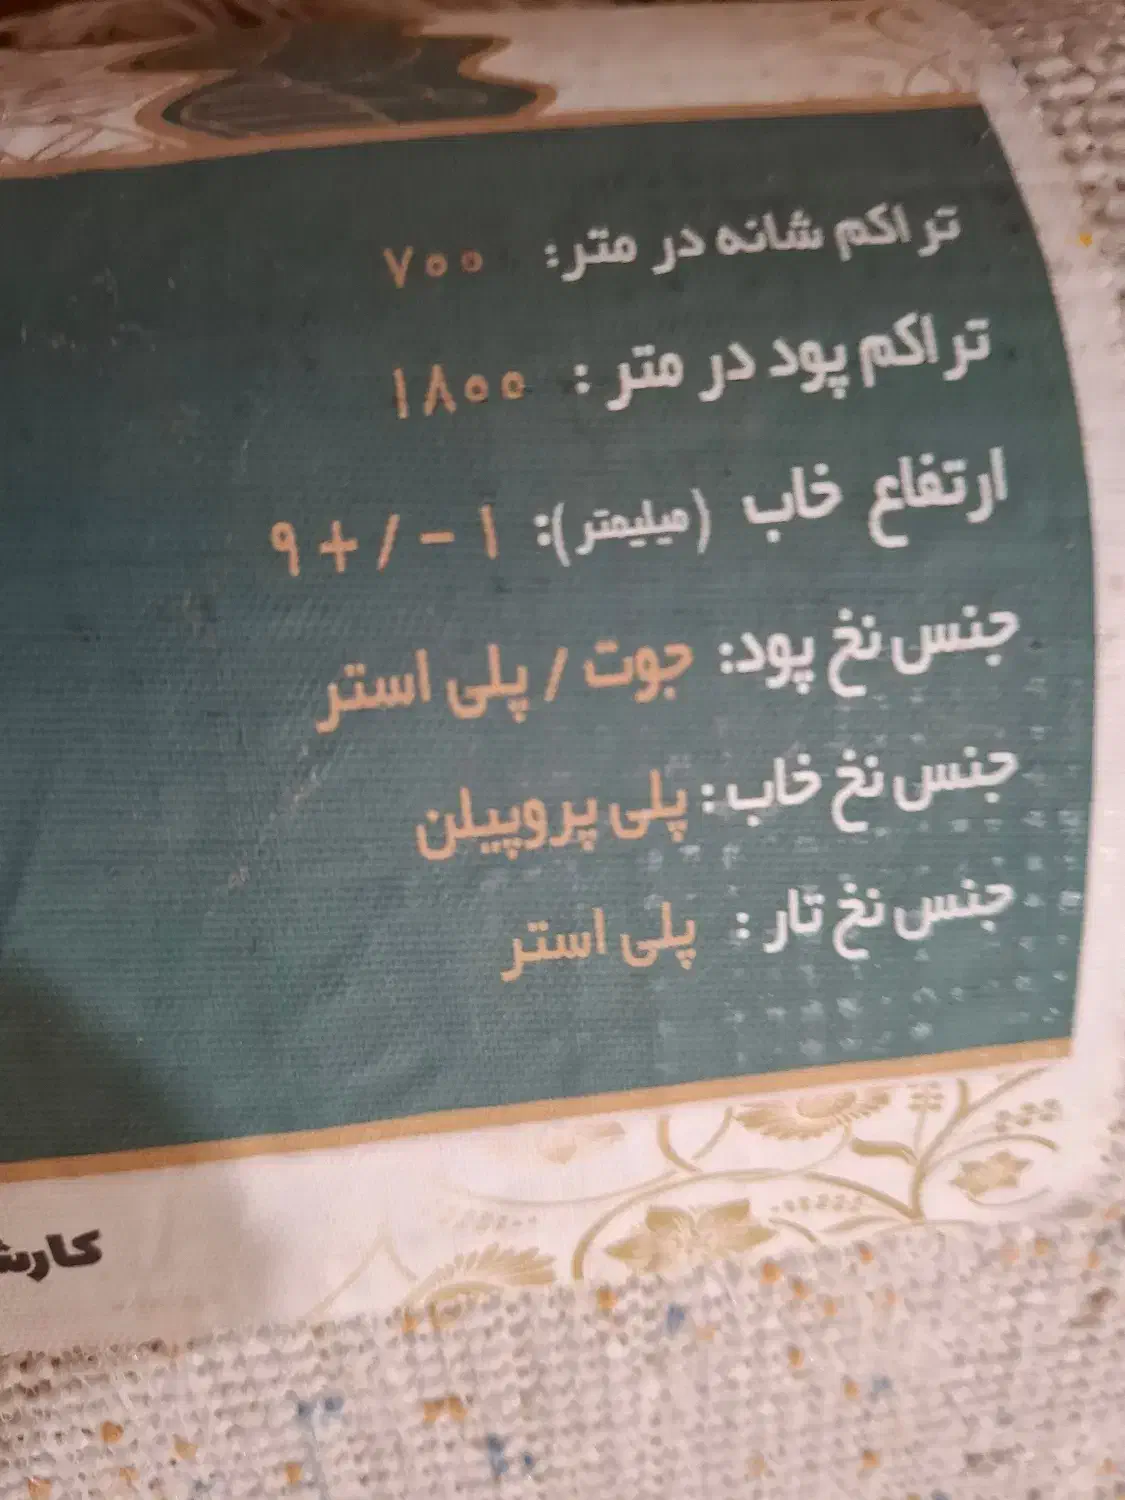 تراکم شانه در متر: ۷۰۰
تراکم پود در متر : ۱۸۰۰
ارتفاع خاب (میلیمتر): ۱ - / + ۹
جنس نخ پود: جوت / پلی استر
جنس نخ خاب: پلی پروپیلن
جنس نخ تار : پلی استر